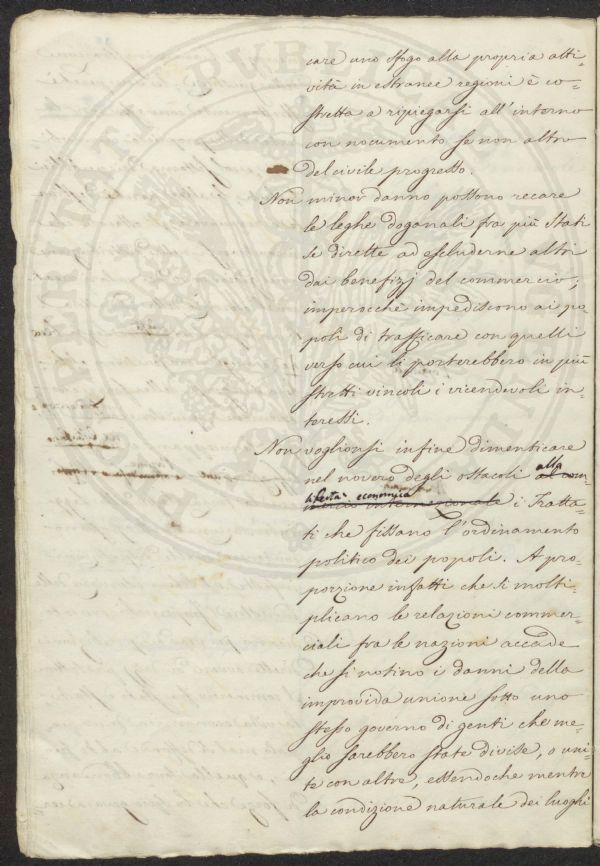 care uno sfogo alla propria atti-
vità in estranee regioni è co-
stretta a ripiegarsi all'interno
con nocumento se non altro
del civile progresso.
Non minor danno possono recare
le leghe doganali fra più Stati
se dirette ad escluderne altri
dai benefizj del commercio;
imperocchè impediscono ai po-
poli di trafficare con quelli
verso cui li porterebbero in più
stretti vincoli i vicendevoli in-
teressi.
Non voglionsi infine dimenticare
nel novero degli ostacoli alla
libertà economica i Tratta-
ti che fissano l'ordinamento
politico dei popoli. A pro-
porzione infatti che si molti-
plicano le relazioni commer-
ciali fra le nazioni accade
che si notino i danni della
improvida unione sotto uno
stesso governo di genti che me-
glio sarebbero state divise, o uni-
te con altre, essendochè mentre
la condizione naturale dei luoghi